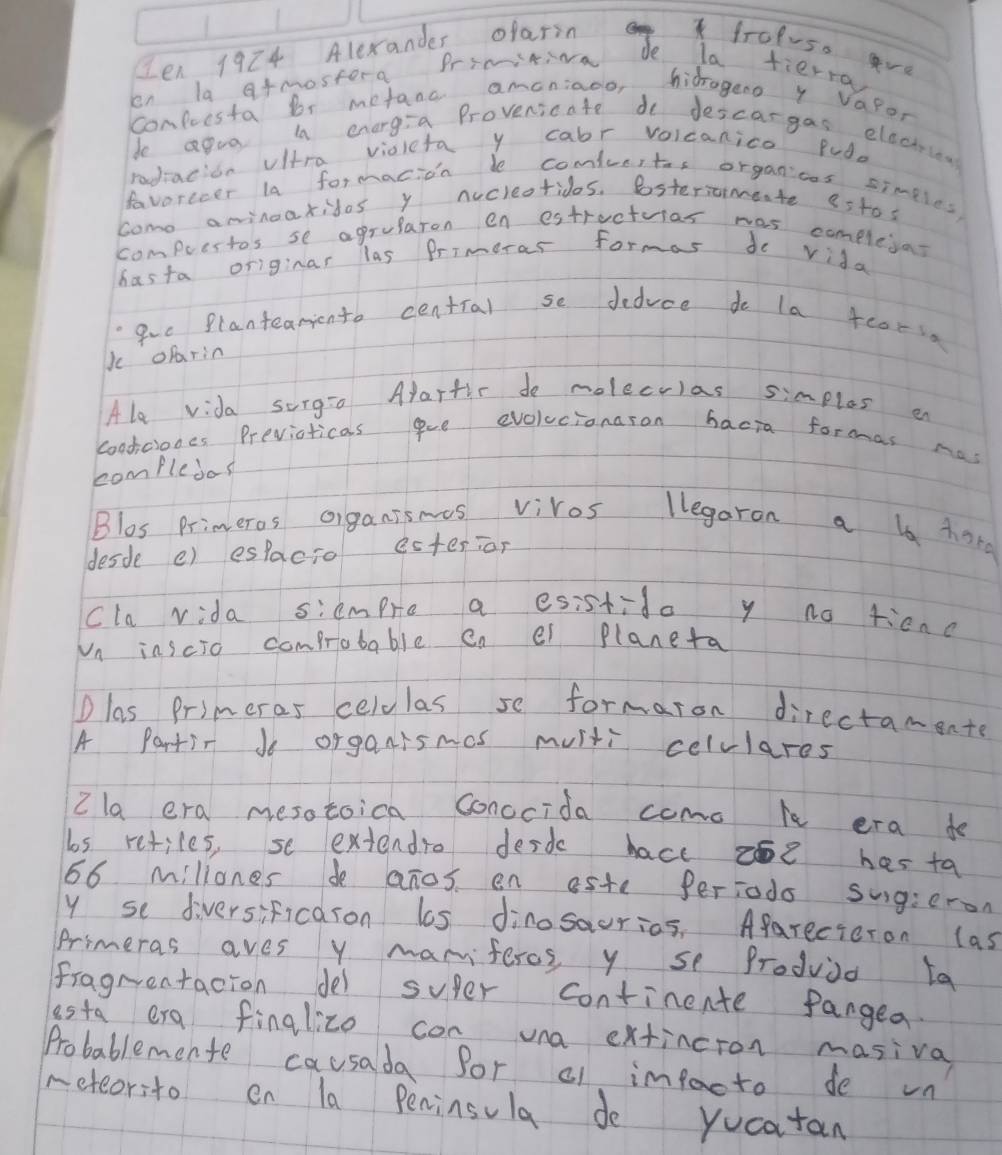 1en 1924 Alexander oparin propuso que
en la atmosfera Primitiva de la tierra
compuesta Por metano amoniaco, hidrogeno y vapor
de agua la energia Proveniente de descargas electricas
radiación ultra violeta y calor volcanico pudo
favorecer la formación de compuestos organicos simples,
como aminoaxidos y nucleotidos. Posteriormente estos
compuestos se agruparon en estructuras mas complejas
hasta originar las Primeras formas de vida
que Planteamiento central se deduce de la teoria
de oparin
A la vida surgio Apartir de moleculas simples en
condiciones Previoticas que evolucionaron hacia formas mas
complejas
B los Primeros organismos vivos llegaron a la tiera
desde el espacio esterior
C la vida siempre a esistido y no tiene
un inicio comprobable en el planeta
D las Primeras celulas se formaron directamente
A Partir de organismos multi celulares
2 la era mesozoica conocida como la era de
los retiles, se extendio desde hace 252 hasta
66 millones de años. en este Periodo surgieron
y se diversificaron los dinosaurios, Aparecieron las
Primeras aves y mamiferos, y se Produjo la
fragmentacion del super continente Pangea.
esta era finalizo con una extincion masiva,
Probablemente causada Por el impacto de un
meteorito en la Peninsula de yucatan